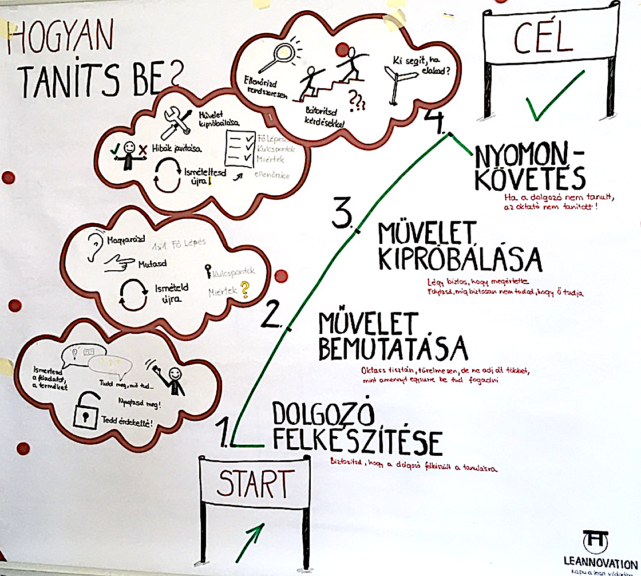 HOGYAN
TANÍTS BE?
CÉL
Ellenőrizd
rendszeresen
Bátorítsd
kérdésekkel
???
Ki segít, ha
elakad?
4.
NYOMON-
KÖVETÉS
Ha a dolgozó nem tanult,
az oktató nem tanított!
Művelet
kipróbálása
Hibák javítása
Ismételtesd
újra!
Fő Lépés
Kulcspontok
Miértek
ellenőrzés
3.
MŰVELET
KIPRÓBÁLÁSA
Légy biztos, hogy megértette
Folytasd, míg biztosan nem tudod, hogy ő tudja
Magyarázd
1x1 Fő Lépés
Mutasd
Ismételd
újra
Kulcspontok
Miértek ?
2.
MŰVELET
BEMUTATÁSA
Oktass tisztán, türelmesen, de ne adj át többet,
mint amennyit egyszerre be tud fogadni
Ismertesd
a feladatot,
a terméket
Tudd meg, mit tud...
Nyugtasd meg!
Tedd érdekeltté!
1.
DOLGOZÓ
FELKÉSZÍTÉSE
Biztosítsd, hogy a dolgozó felkészült a tanulásra
START
LEANNOVATION